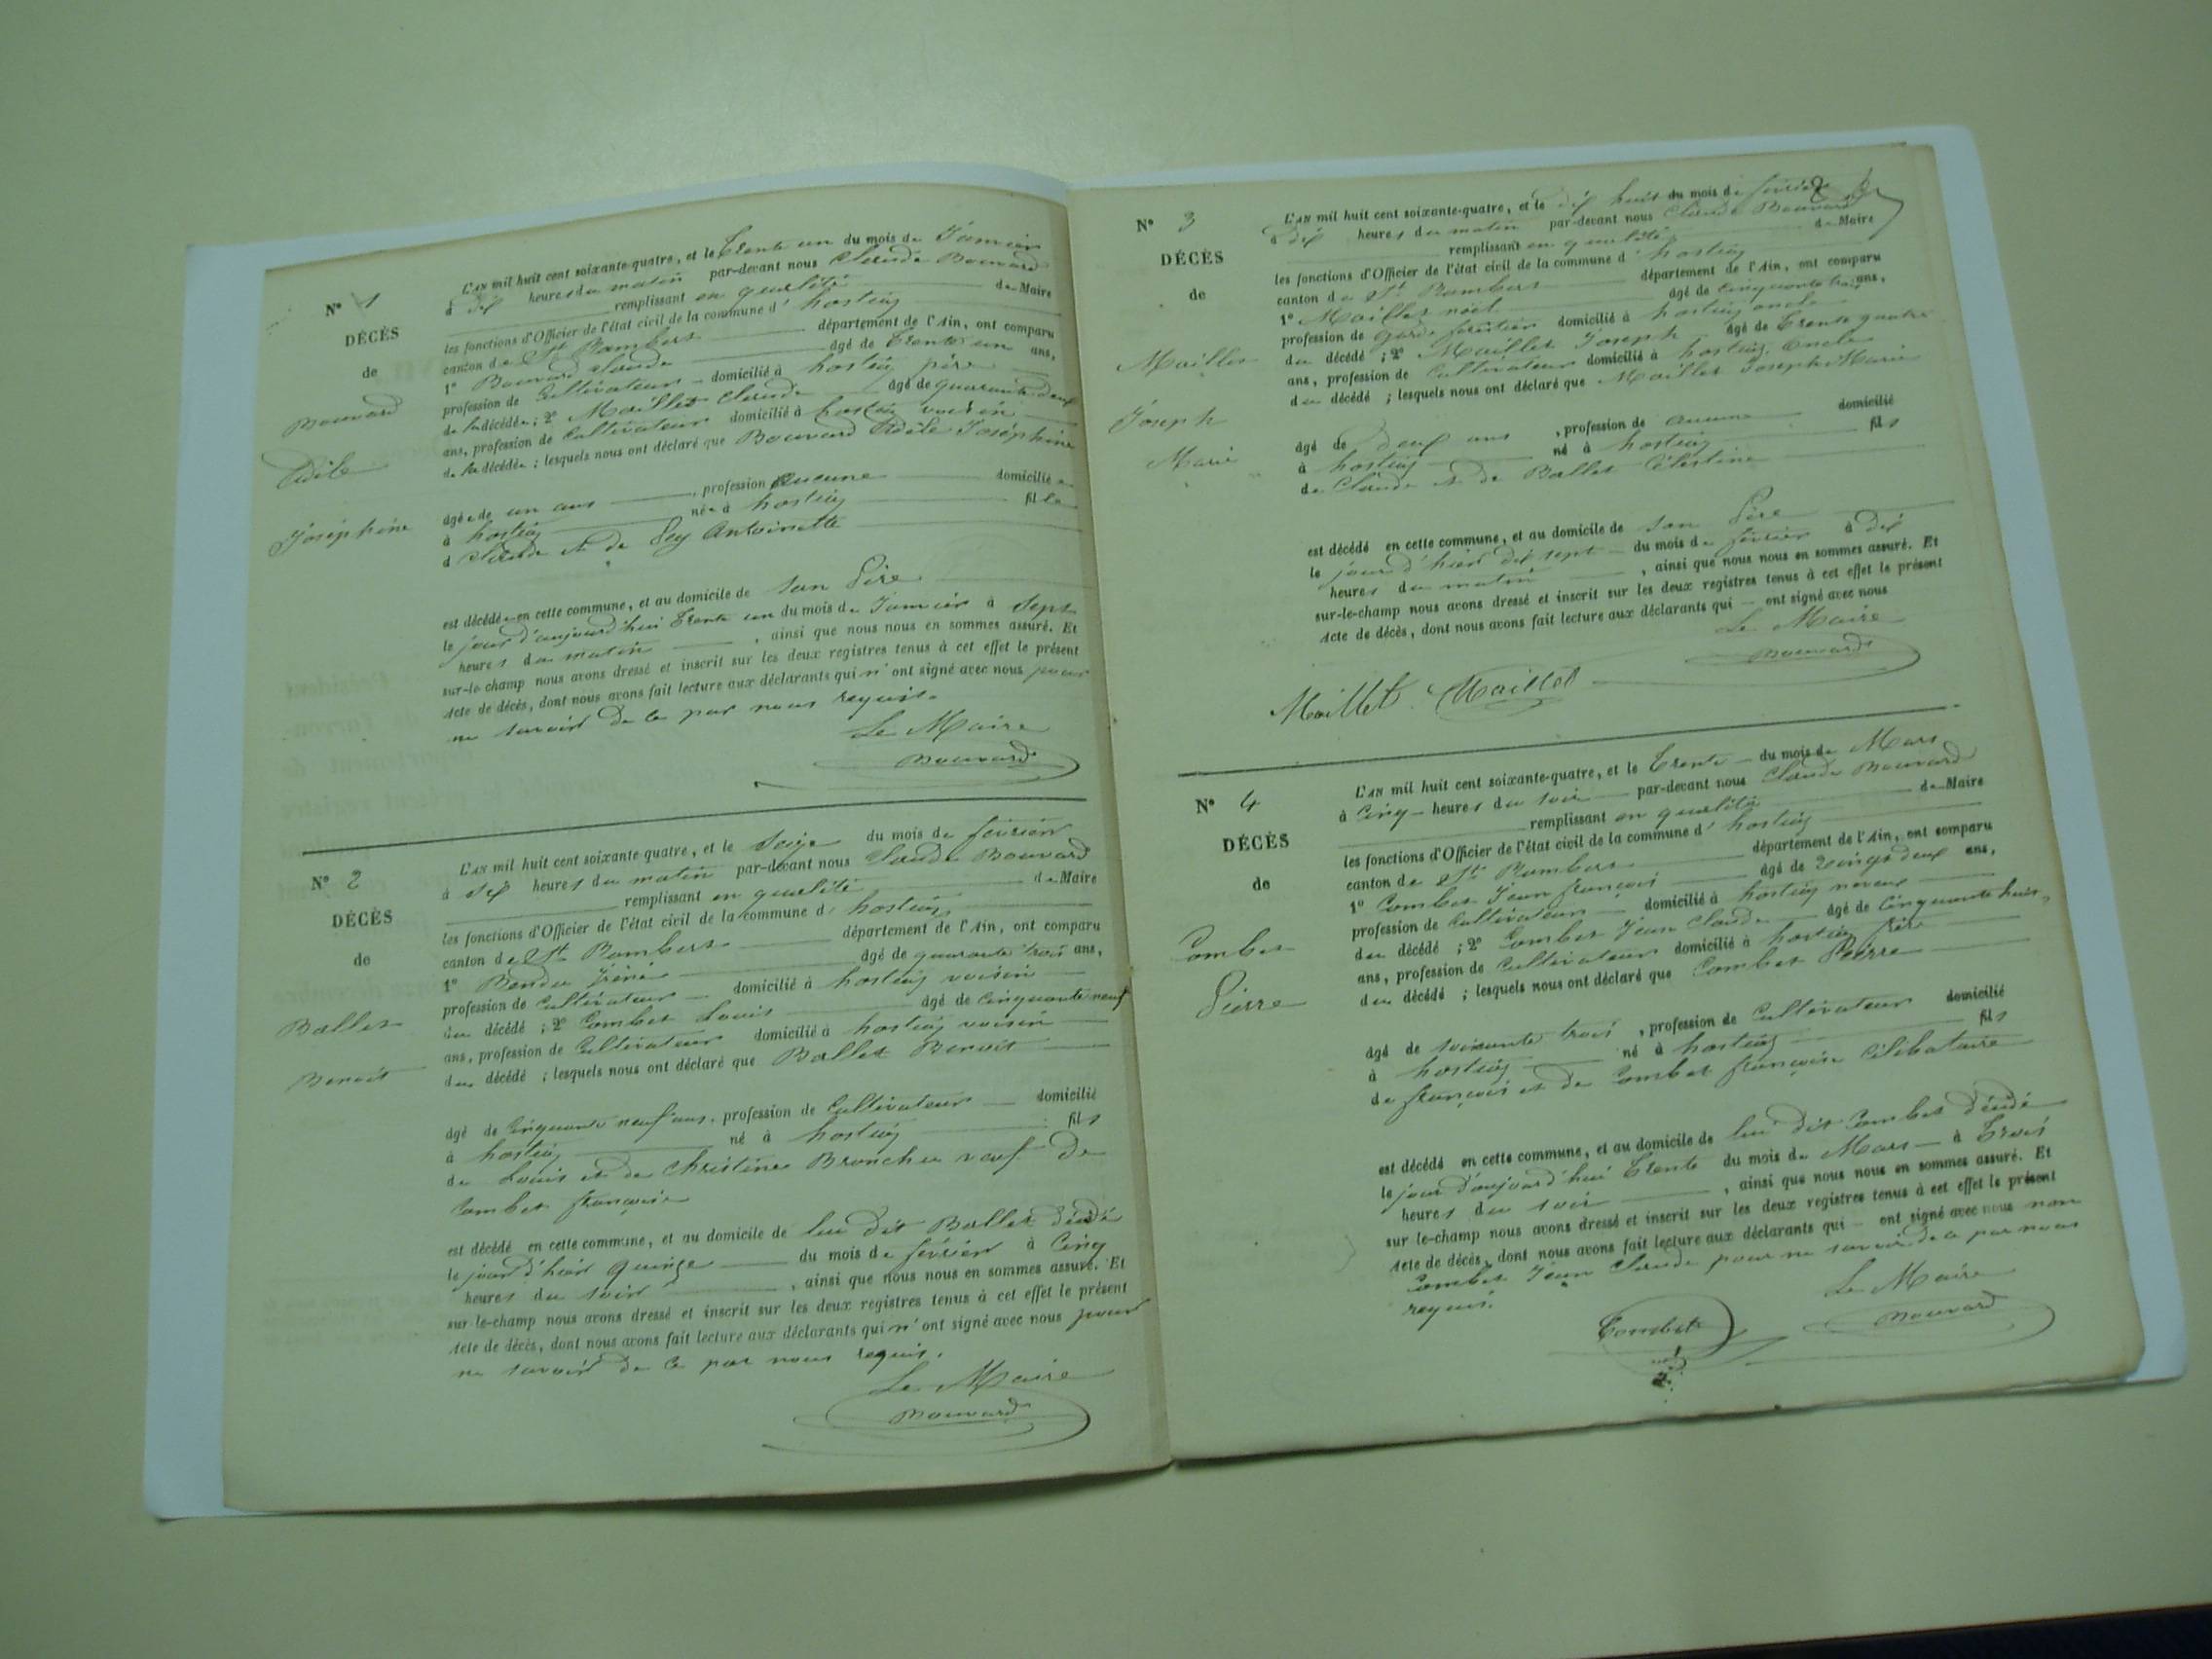 N° 1
DÉCÈS
de
Bouvard
Adèle
Joséphine
L'AN mil huit cent soixante-quatre, et le Trente un du mois de Janvier
à dix heures du matin par-devant nous Claude Bouvard
remplissant en qualité de Maire
les fonctions d'Officier de l'état civil de la commune d' hostiaz
canton de St Rambert département de l'Ain, ont comparu
1° Bouvard Claude âgé de Trente un ans,
profession de Cultivateur domicilié à hostiaz père
de la décédée ; 2° Maillet Claude âgé de quarante deux
ans, profession de Cultivateur domicilié à hostiaz voisin
de la décédée ; lesquels nous ont déclaré que Bouvard Adèle Joséphine
âgée de un ans, profession aucune domiciliée
à hostiaz née à hostiaz fille
d Claude et de Antoinette
est décédée en cette commune, et au domicile de son Père
le jour d'aujourd'hui Trente un du mois de Janvier à Sept
heures du matin, ainsi que nous nous en sommes assuré. Et
sur-le-champ nous avons dressé et inscrit sur les deux registres tenus à cet effet le présent
Acte de décès, dont nous avons fait lecture aux déclarants qui n'ont signé avec nous pour
ne savoir de ce par nous requis.
Le Maire
Bouvard
N° 2
DÉCÈS
de
Ballet
Benoit
L'AN mil huit cent soixante-quatre, et le Seize du mois de février
à dix heures du matin par-devant nous Claude Bouvard
remplissant en qualité de Maire
les fonctions d'Officier de l'état civil de la commune d' hostiaz
canton de St Rambert département de l'Ain, ont comparu
1° iréné âgé de quarante trois ans,
profession de Cultivateur domicilié à hostiaz voisin
du décédé ; 2° Combet Louis âgé de Cinquante neuf
ans, profession de Cultivateur domicilié à hostiaz voisin
du décédé ; lesquels nous ont déclaré que Ballet Benoit
âgé de Cinquante neuf ans, profession de Cultivateur domicilié
à hostiaz né à hostiaz fils
de Louis et de Christine veuf de
Combet françoise
est décédé en cette commune, et au domicile de lui dit Ballet décédé
le jour d'hier quinze du mois de février à Cinq
heures du soir, ainsi que nous nous en sommes assuré. Et
sur-le-champ nous avons dressé et inscrit sur les deux registres tenus à cet effet le présent
Acte de décès, dont nous avons fait lecture aux déclarants qui n'ont signé avec nous pour
ne savoir de ce par nous requis.
Le Maire
Bouvard
8
N° 3
DÉCÈS
de
Maillet
Joseph
Marie
L'AN mil huit cent soixante-quatre, et le dix huit du mois de février
à dix heures du matin par-devant nous Claude Bouvard
remplissant en qualité de Maire
les fonctions d'Officier de l'état civil de la commune d' hostiaz
canton de St Rambert département de l'Ain, ont comparu
1° Maillet noël âgé de Cinquante trois ans,
profession de garde forestier domicilié à hostiaz oncle
du décédé ; 2° Maillet Joseph âgé de Trente quatre
ans, profession de Cultivateur domicilié à hostiaz. Oncle
du décédé ; lesquels nous ont déclaré que Maillet Joseph Marie
âgé de deux ans, profession de aucune domicilié
à hostiaz né à hostiaz fils
de Claude et de Ballet Célestine
est décédé en cette commune, et au domicile de son Père
le jour d'hier dix sept du mois de février à dix
heures du matin, ainsi que nous nous en sommes assuré. Et
sur-le-champ nous avons dressé et inscrit sur les deux registres tenus à cet effet le présent
Acte de décès, dont nous avons fait lecture aux déclarants qui ont signé avec nous
Le Maire
Bouvard
Maillet Maillet
N° 4
DÉCÈS
de
Combet
Pierre
L'AN mil huit cent soixante-quatre, et le Trente du mois de Mars
à Cinq heures du soir par-devant nous Claude Bouvard
remplissant en qualité de Maire
les fonctions d'Officier de l'état civil de la commune d' hostiaz
canton de St Rambert département de l'Ain, ont comparu
1° Combet Jean françois âgé de vingt deux ans,
profession de Cultivateur domicilié à hostiaz neveux
du décédé ; 2° Combet Jean Claude âgé de Cinquante huit
ans, profession de Cultivateur domicilié à hostiaz frère
du décédé ; lesquels nous ont déclaré que Combet Pierre
âgé de soixante trois, profession de Cultivateur domicilié
à hostiaz né à hostiaz fils
de françois et de Combet françoise Célibataire
est décédé en cette commune, et au domicile de lui dit Combet décédé
le jour d'aujourd'hui Trente du mois de Mars à Trois
heures du soir, ainsi que nous nous en sommes assuré. Et
sur-le-champ nous avons dressé et inscrit sur les deux registres tenus à cet effet le présent
Acte de décès, dont nous avons fait lecture aux déclarants qui ont signé avec nous non
Combet Jean Claude pour ne savoir de ce par nous
requis.
Le Maire
Combet
Bouvard